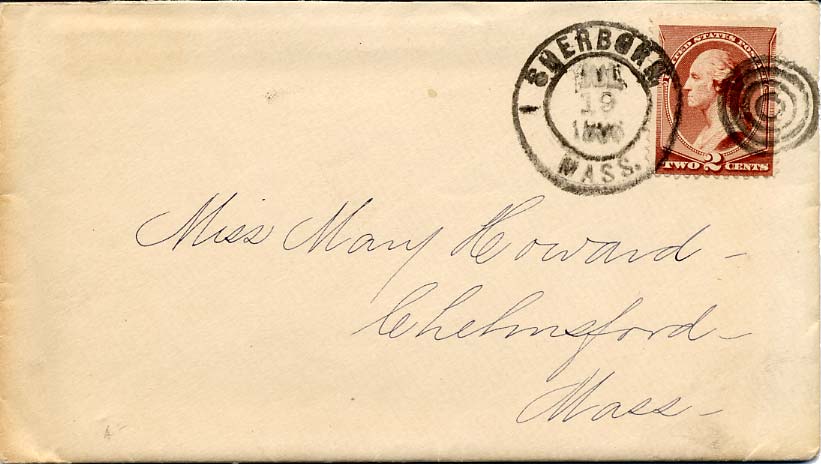 SHERBORN
19
MASS.
UNITED STATES POS
TWO 2 CENTS
Miss Mary Howard –
Chelmsford –
Mass –